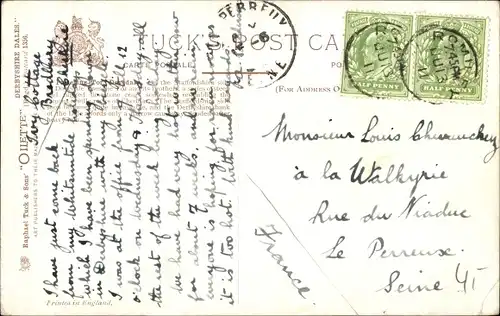 TUCK'S POST CARD
CARTE POSTALE
(FOR ADDRESS O
Raphael Tuck & Sons' "OILETTE"
ART PUBLISHERS TO THEIR
"DERBYSHIRE DALES."
HALF PENNY
HALF PENNY
PERREUX
NE
Ivy Cottage
Bredbury
Cheshire
I have just come back
from my Whitsuntide holidays
which I have been spending
in Derbyshire with my
I was at the office from 9 till 12
o'clock on Wednesday
the rest of the week being holiday
we have had very hot weather
for about 7 weeks, and now
everyone is hoping for rain as
it is too hot. With kind regards
Monsieur Louis
à la Walkyrie
Rue du Viaduc
Le Perreux
Seine
France
Printed in England.